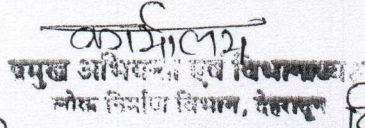 कार्यालय
प्रमुख अभियन्ता एवं विभागाध्यक्ष
लोक निर्माण विभाग, देहरादून